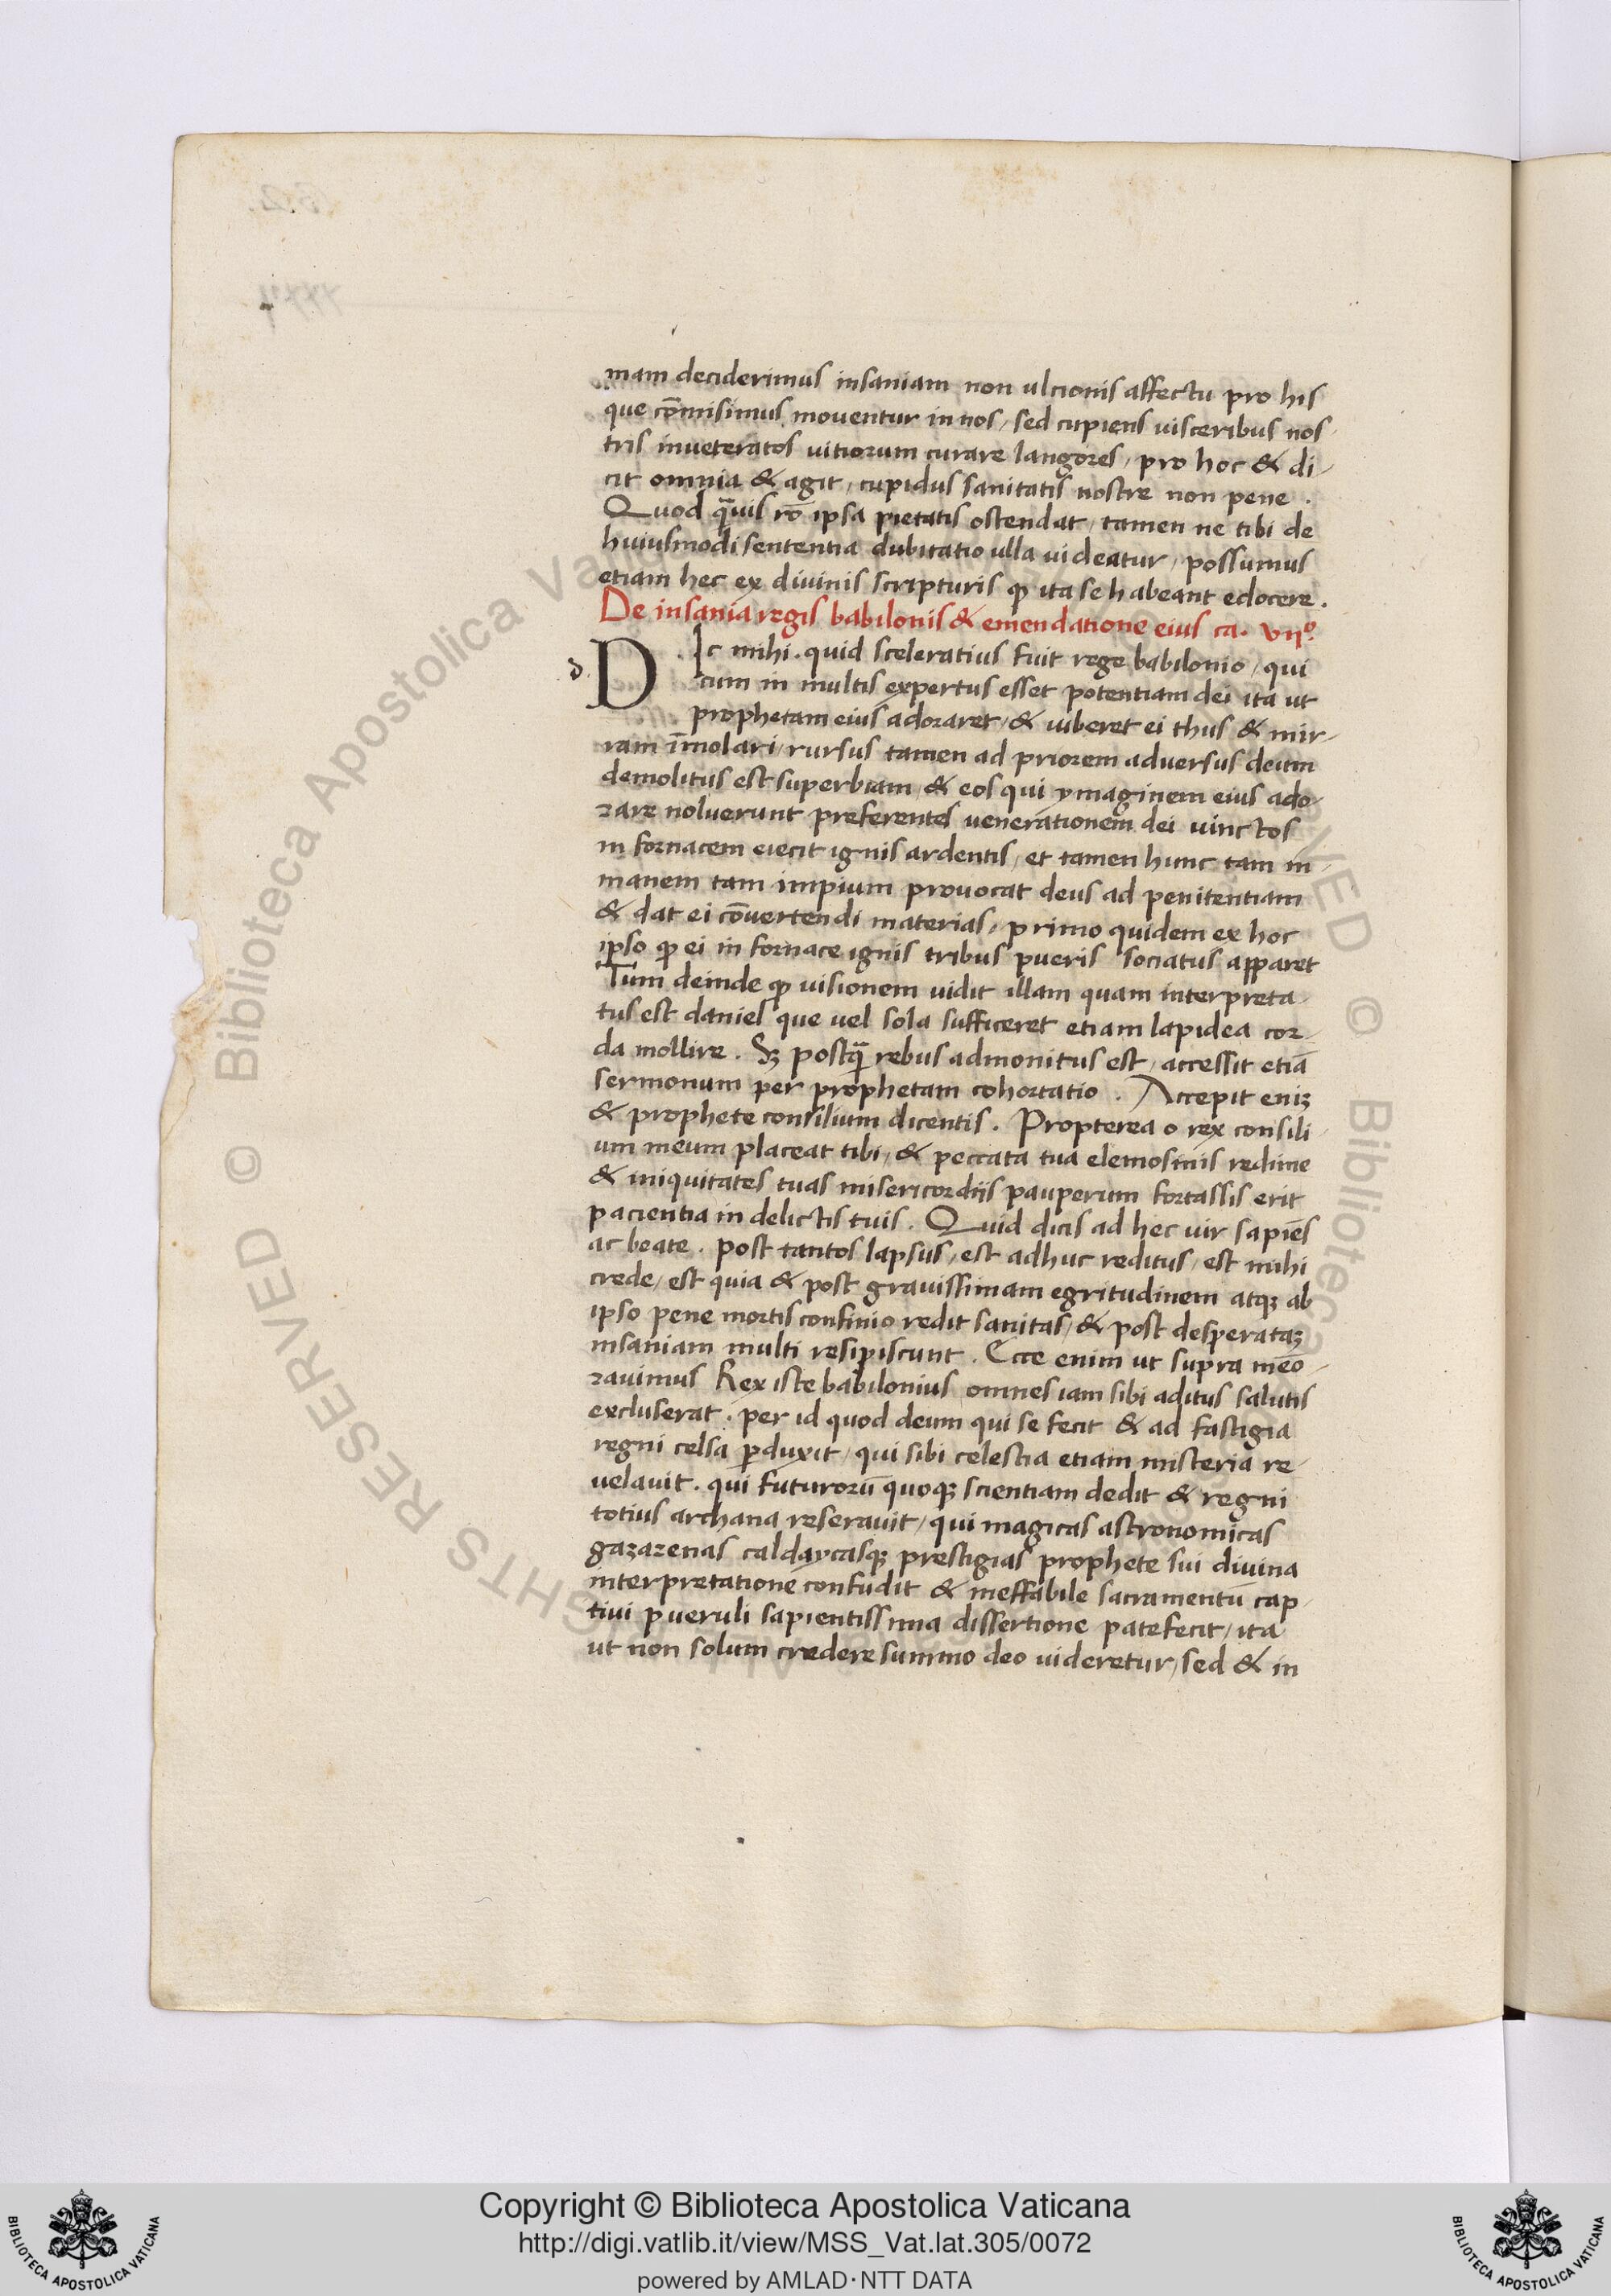 mam deciderimus insaniam non ulcionis affectu pro his
que cōmisimus moventur in nos, sed cupiens visceribus nos
tris inveteratos vitiorum curare langores, pro hoc & di-
cit omnia & agit, cupidus sanitatis nostre non pene.
Quod q̄vis rō ipsa pietatis ostendat, tamen ne tibi de
huiusmodi sententia dubitatio ulla videatur, possumus
etiam hec ex divinis scripturis ꝙ ita se habeant edocere.
De insania regis babilonis & emendatione eius ca. VIIº.
d.
DIc mihi. quid sceleratius fuit rege babilonio, qui
cum in multis expertus esset potentiam dei ita ut
prophetam eius adoraret, & iuberet ei thus & mir-
ram īmolari, rursus tamen ad priorem adversus deum
demolitus est superbiam, & eos qui ymaginem eius ado-
rare noluerunt preferentes venerationem dei vinctos
in fornacem eiecit ignis ardentis, et tamen hunc tam in-
manem tam impium provocat deus ad penitentiam
& dat ei cōvertendi materias, primo quidem ex hoc
ipso ꝙ ei in fornace ignis tribus pueris sociatus apparet
Tum deinde ꝙ visionem vidit illam quam interpreta-
tus est daniel que vel sola sufficeret etiam lapidea cor-
da mollire. Sꝫ postq̄ rebus admonitus est, accessit etiā
sermonum per prophetam cohortatio. Accepit eniꝫ
& prophete consilium dicentis. Propterea o rex consili-
um meum placeat tibi, & peccata tua elemosinis redime
& iniquitates tuas misericordiis pauperum fortassis erit
pacientia in delictis tuis. Quid dicis ad hec vir sapiēs
ac beate. Post tantos lapsus, est adhuc reditus, est mihi
crede, est quia & post gravissimam egritudinem atqꝫ ab
ipso pene mortis confinio redit sanitas, & post desperataꝫ
insaniam multi resipiscunt. Ecce enim ut supra mēo-
ravimus Rex iste babilonius omnes iam sibi aditus salutis
excluserat. per id quod deum qui se fecit & ad fastigia
regni celsa ꝑduxit, qui sibi celestia etiam misteria re-
velavit. qui futurorū quoqꝫ scientiam dedit & regni
totius archana reseravit, qui magicas astronomicas
gazarenas caldaycasqꝫ prestigias prophete sui divina
interpretationē confudit & ineffabile sacramentū cap-
tivi pueruli sapientissima dissertione patefecit, ita
ut non solum credere summo deo videretur, sed & in
Copyright © Biblioteca Apostolica Vaticana
http://digi.vatlib.it/view/MSS_Vat.lat.305/0072
powered by AMLAD·NTT DATA